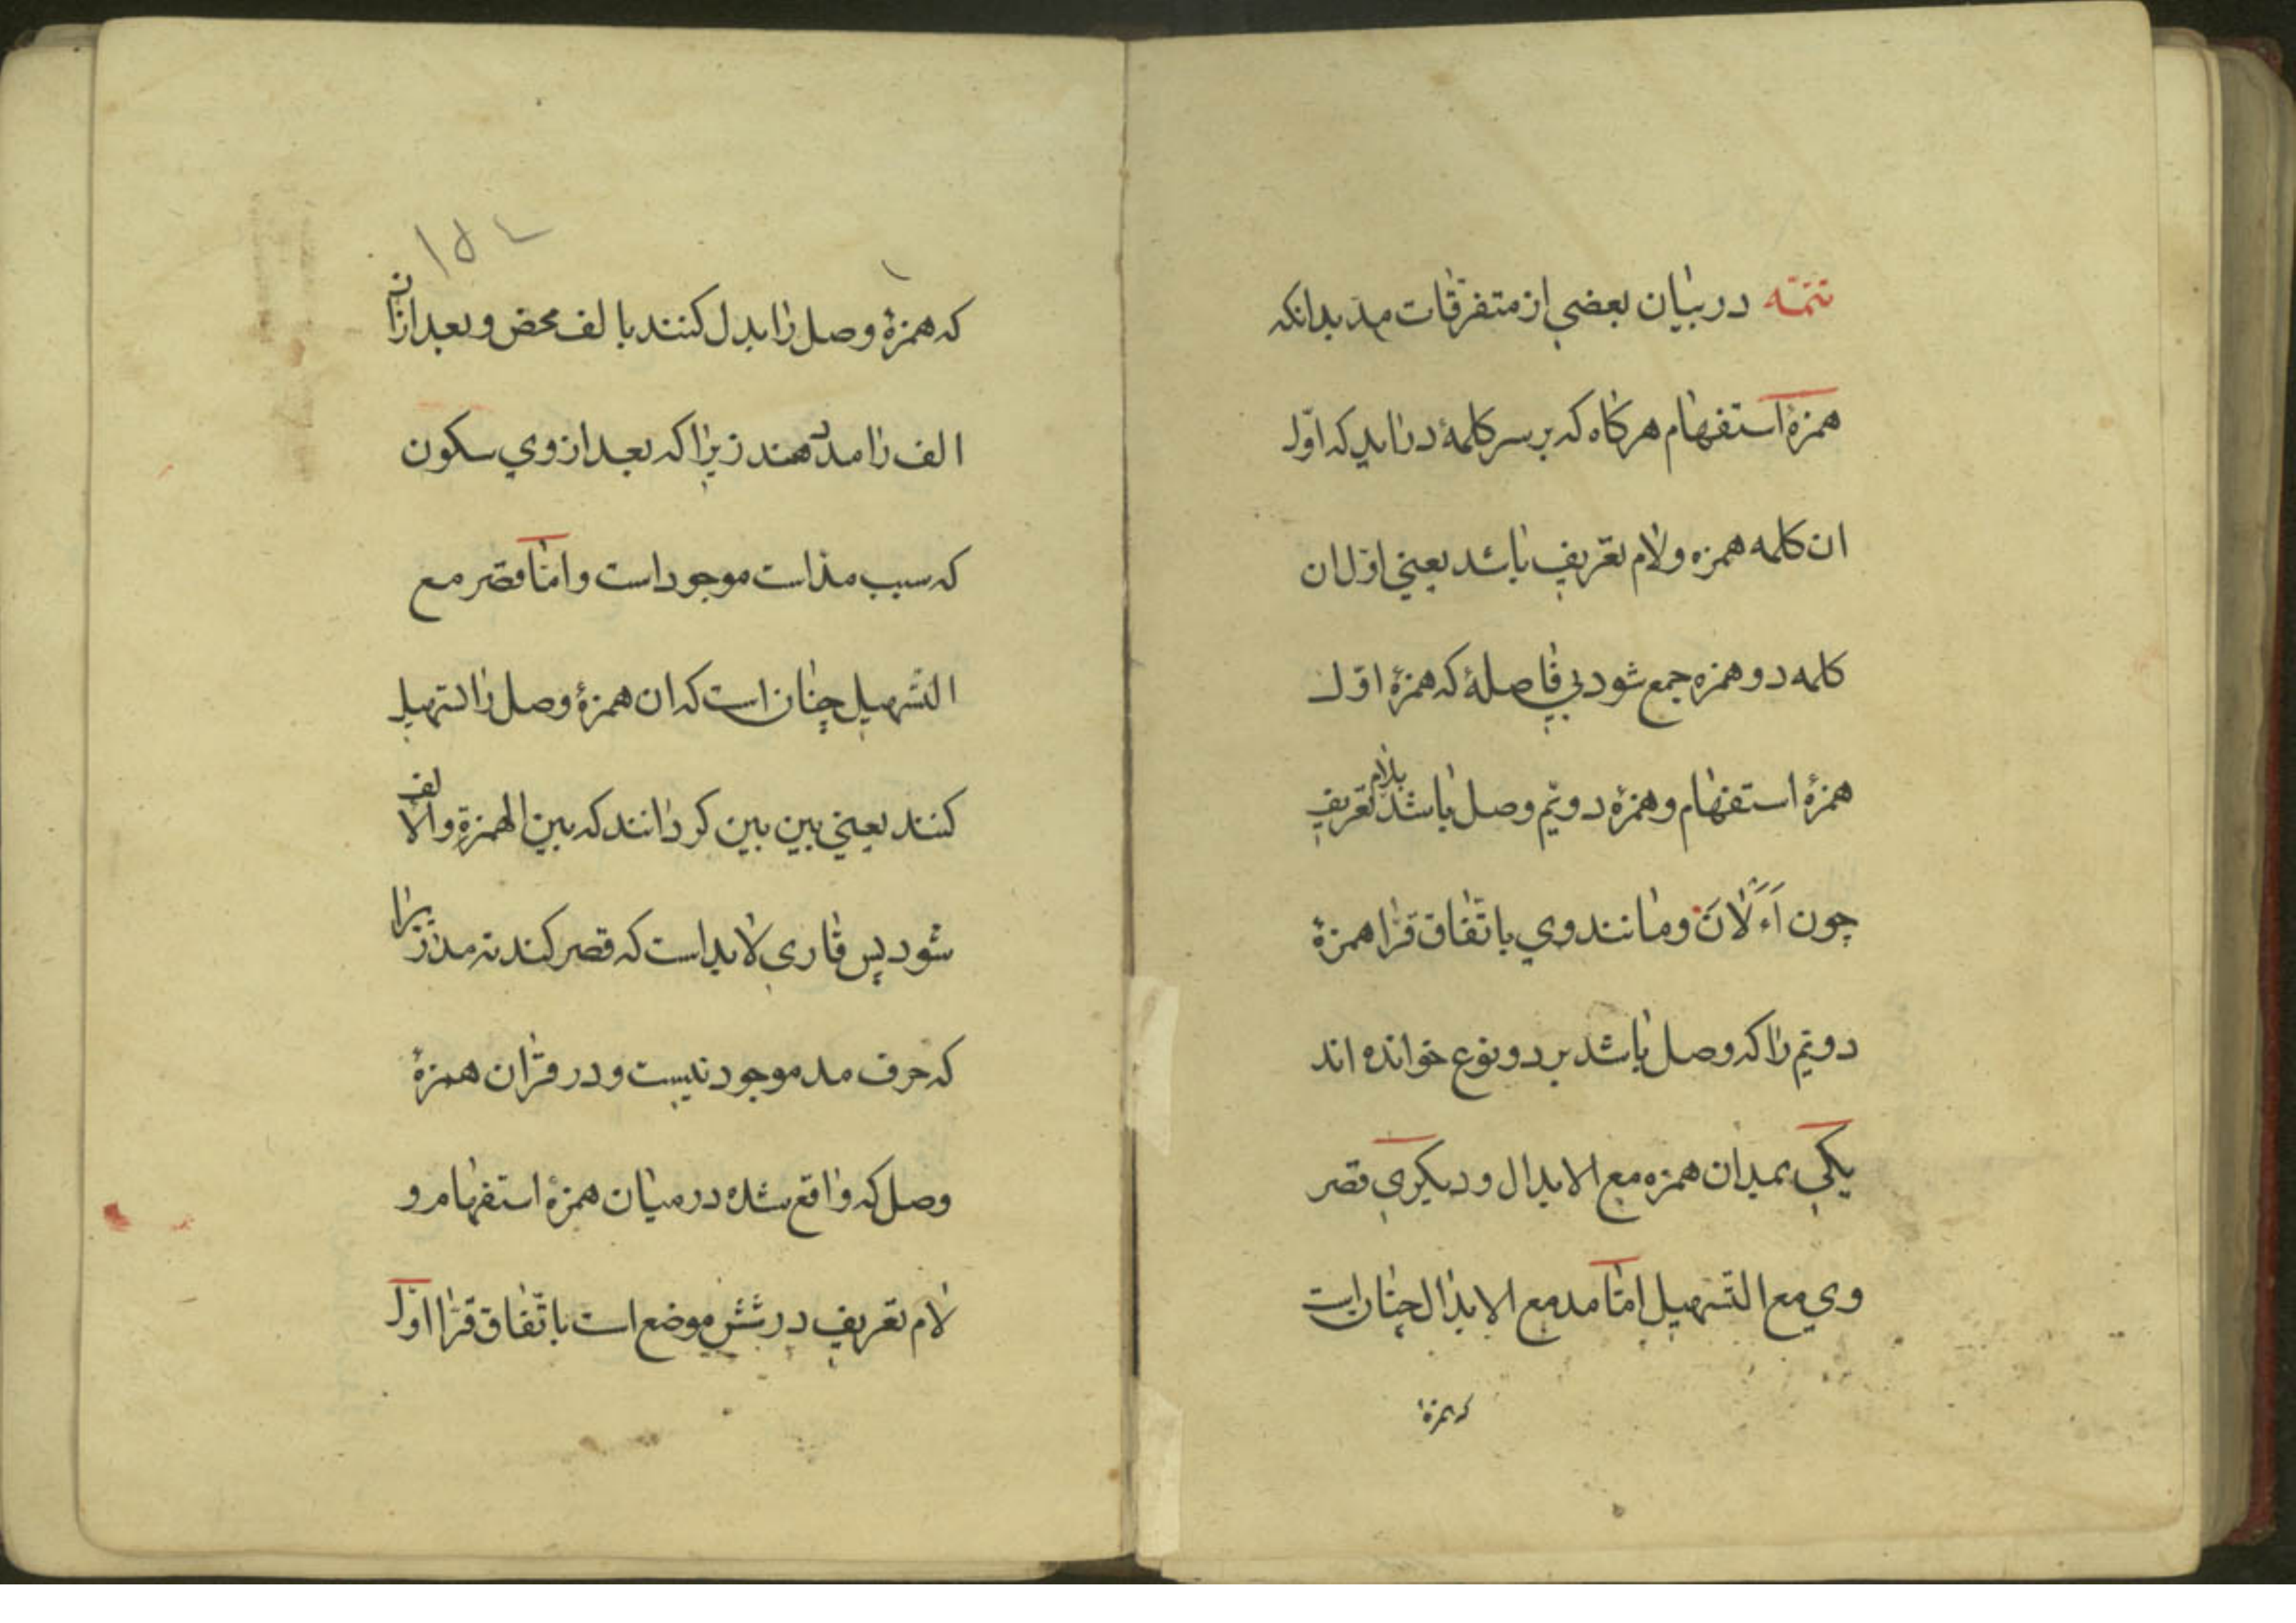 تتمّه در بيان بعضي از متفرّقات مدّ بدانكه
همزهٔ استفهام هركاه كه بر سر كلمهٔ درايد كه اوّل
ان كلمه همزه ولام تعريف باشد يعني اوّل ان
كلمه دو همزه جمع شود بي فاصلهٔ كه همزهٔ اوّل
همزهٔ استفهام و همزهٔ دويّم وصل باشد بلام تعريف
چون آءَلْانَ و مانند وي باتّفاق قرّا همزهٔ
دويّم را كه وصل باشد بر دو نوع خوانده اند
يكي بمدان همزه مع الابدال و ديكري قصر
وي مع التّسهيل امّا مد مع الابدال چنان است
كه همزهٔ
١٥٤
كه همزهٔ وصل را بدل كنند با لف محض و بعد ازان
الف را مدّ دهند زيرا كه بعد از وي سكون
كه سبب مدّ است موجود است و امّا قصر مع
التّسهيل چنان است كه ان همزهٔ وصل را تسهيل
كنند يعني بين بين كردانند كه بين الهمزةِ والالف
شود پس قاري لابد است كه قصر كند نه مدّ زيرا
كه حرف مد موجود نيست و در قران همزهٔ
وصل كه واقع شده در ميان همزهٔ استفهام و
لام تعريف در شش موضع است باتّفاق قرّا اوّل